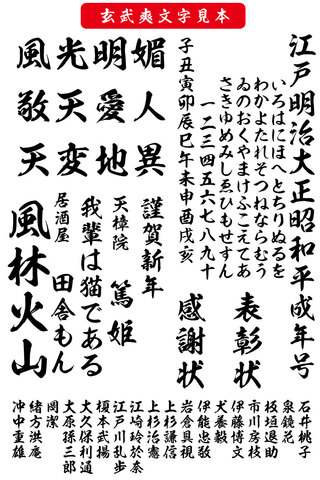 玄武爽文字見本
江戸明治大正昭和平成年号
いろはにほへとちりぬるを
わかよたれそつねならむう
ゐのおくやまけふこえてあ
さきゆめみしゑひもせすん
一二三四五六七八九十
子丑寅卯辰巳午未申酉戌亥
風光明媚
敬天愛人
天変地異
表彰状
感謝状
謹賀新年
天樟院 篤姫
我輩は猫である
居酒屋 田舎もん
風林火山
石井桃子
泉鏡花
板垣退助
市川房枝
伊藤博文
犬養毅
伊能忠敬
岩倉具視
上杉謙信
上杉治憲
江崎玲於奈
江戸川乱歩
榎本武揚
大久保利通
大原孫三郎
岡潔
緒方洪庵
沖中重雄